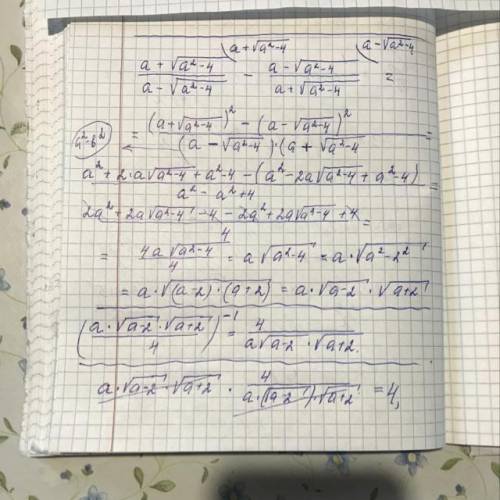 a+√a²-4 a-√a²-4
(a+√a²-4)/(a-√a²-4) - (a-√a²-4)/(a+√a²-4) =
= ((a+√a²-4)² - (a-√a²-4)²)/((a-√a²-4)·(a+√a²-4) =
a²-b²
(a²+2·a√a²-4+a²-4-(a²-2a√a²-4+a²-4))/(a²-a²+4) =
2a²+2a√a²-4-4-2a²+2a√a²-4+4 =
4
= 4a√a²-4/4 = a√a²-4 = a·√a²-2²
= a·√(a-2)·(a+2) = a·√a-2·√a+2
(a·√a-2·√a+2/4)⁻¹ = 4/a√a-2·√a+2.
a·√a-2·√a+2 · 4/a·(√a-2)·√a+2 = 4,